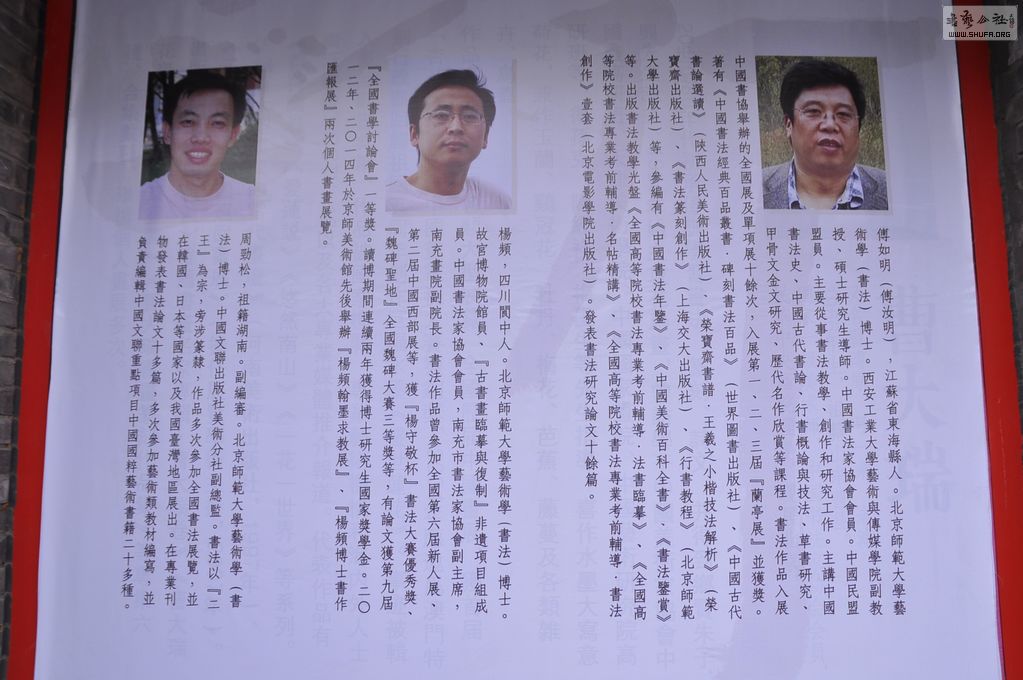 書藝公社
WWW.SHUFA.ORG
傅如明（傅汝明），江蘇省東海縣人。北京師範大學藝
術學（書法）博士。西安工業大學藝術與傳媒學院副教
授、碩士研究生導師。中國書法家協會會員。中國民盟
盟員。主要從事書法教學、創作和研究工作。主講中國
書法史、中國古代書論、行書概論與技法、草書研究、
甲骨文金文研究、歷代名作欣賞等課程。書法作品入展
中國書協舉辦的全國展及單項展十餘次，入展第一、二、三屆『蘭亭展』並獲獎。
著有《中國書法經典百品叢書·碑刻書法百品》（世界圖書出版社）、《中國古代
書論選讀》（陝西人民美術出版社）、《榮寶齋書譜·王羲之小楷技法解析》（榮
寶齋出版社）、《書法篆刻創作》（上海交大出版社）、《行書教程》（北京師範
大學出版社）等，參編有《中國書法年鑒》、《中國美術百科全書》、《書法鑒賞》
等。出版書法教學光盤《全國高等院校書法專業考前輔導·法書臨摹》、《全國高
等院校書法專業考前輔導·名帖精講》、《全國高等院校書法專業考前輔導·書法
創作》壹套（北京電影學院出版社）。發表書法研究論文十餘篇。
楊頻，四川閬中人。北京師範大學藝術學（書法）博士。
故宮博物院館員、『古書畫臨摹與復制』非遺項目組成
員。中國書法家協會會員，南充市書法家協會副主席，
南充畫院副院長。書法作品曾參加全國第六屆新人展、
第二屆中國西部展等，獲『楊守敬杯』書法大賽優秀獎、
『魏碑聖地』全國魏碑大賽三等獎等，有論文獲第九屆
『全國書學討論會』一等獎。讀博期間連續兩年獲得博士研究生國家獎學金。二〇
一二年、二〇一四年於京師美術館先後舉辦『楊頻翰墨求教展』、『楊頻博士書作
匯報展』兩次個人書畫展覽。
周勁松，祖籍湖南。副編審。北京師範大學藝術學（書
法）博士。中國文聯出版社美術分社副總監。書法以『二
王』為宗，旁涉篆隸，作品多次參加全國書法展覽，並
在韓國、日本等國家以及我國臺灣地區展出。在專業刊
物發表書法論文十多篇，多次參加藝術類教材編寫，並
負責編輯中國文聯重點項目中國國粹藝術書籍二十多種。